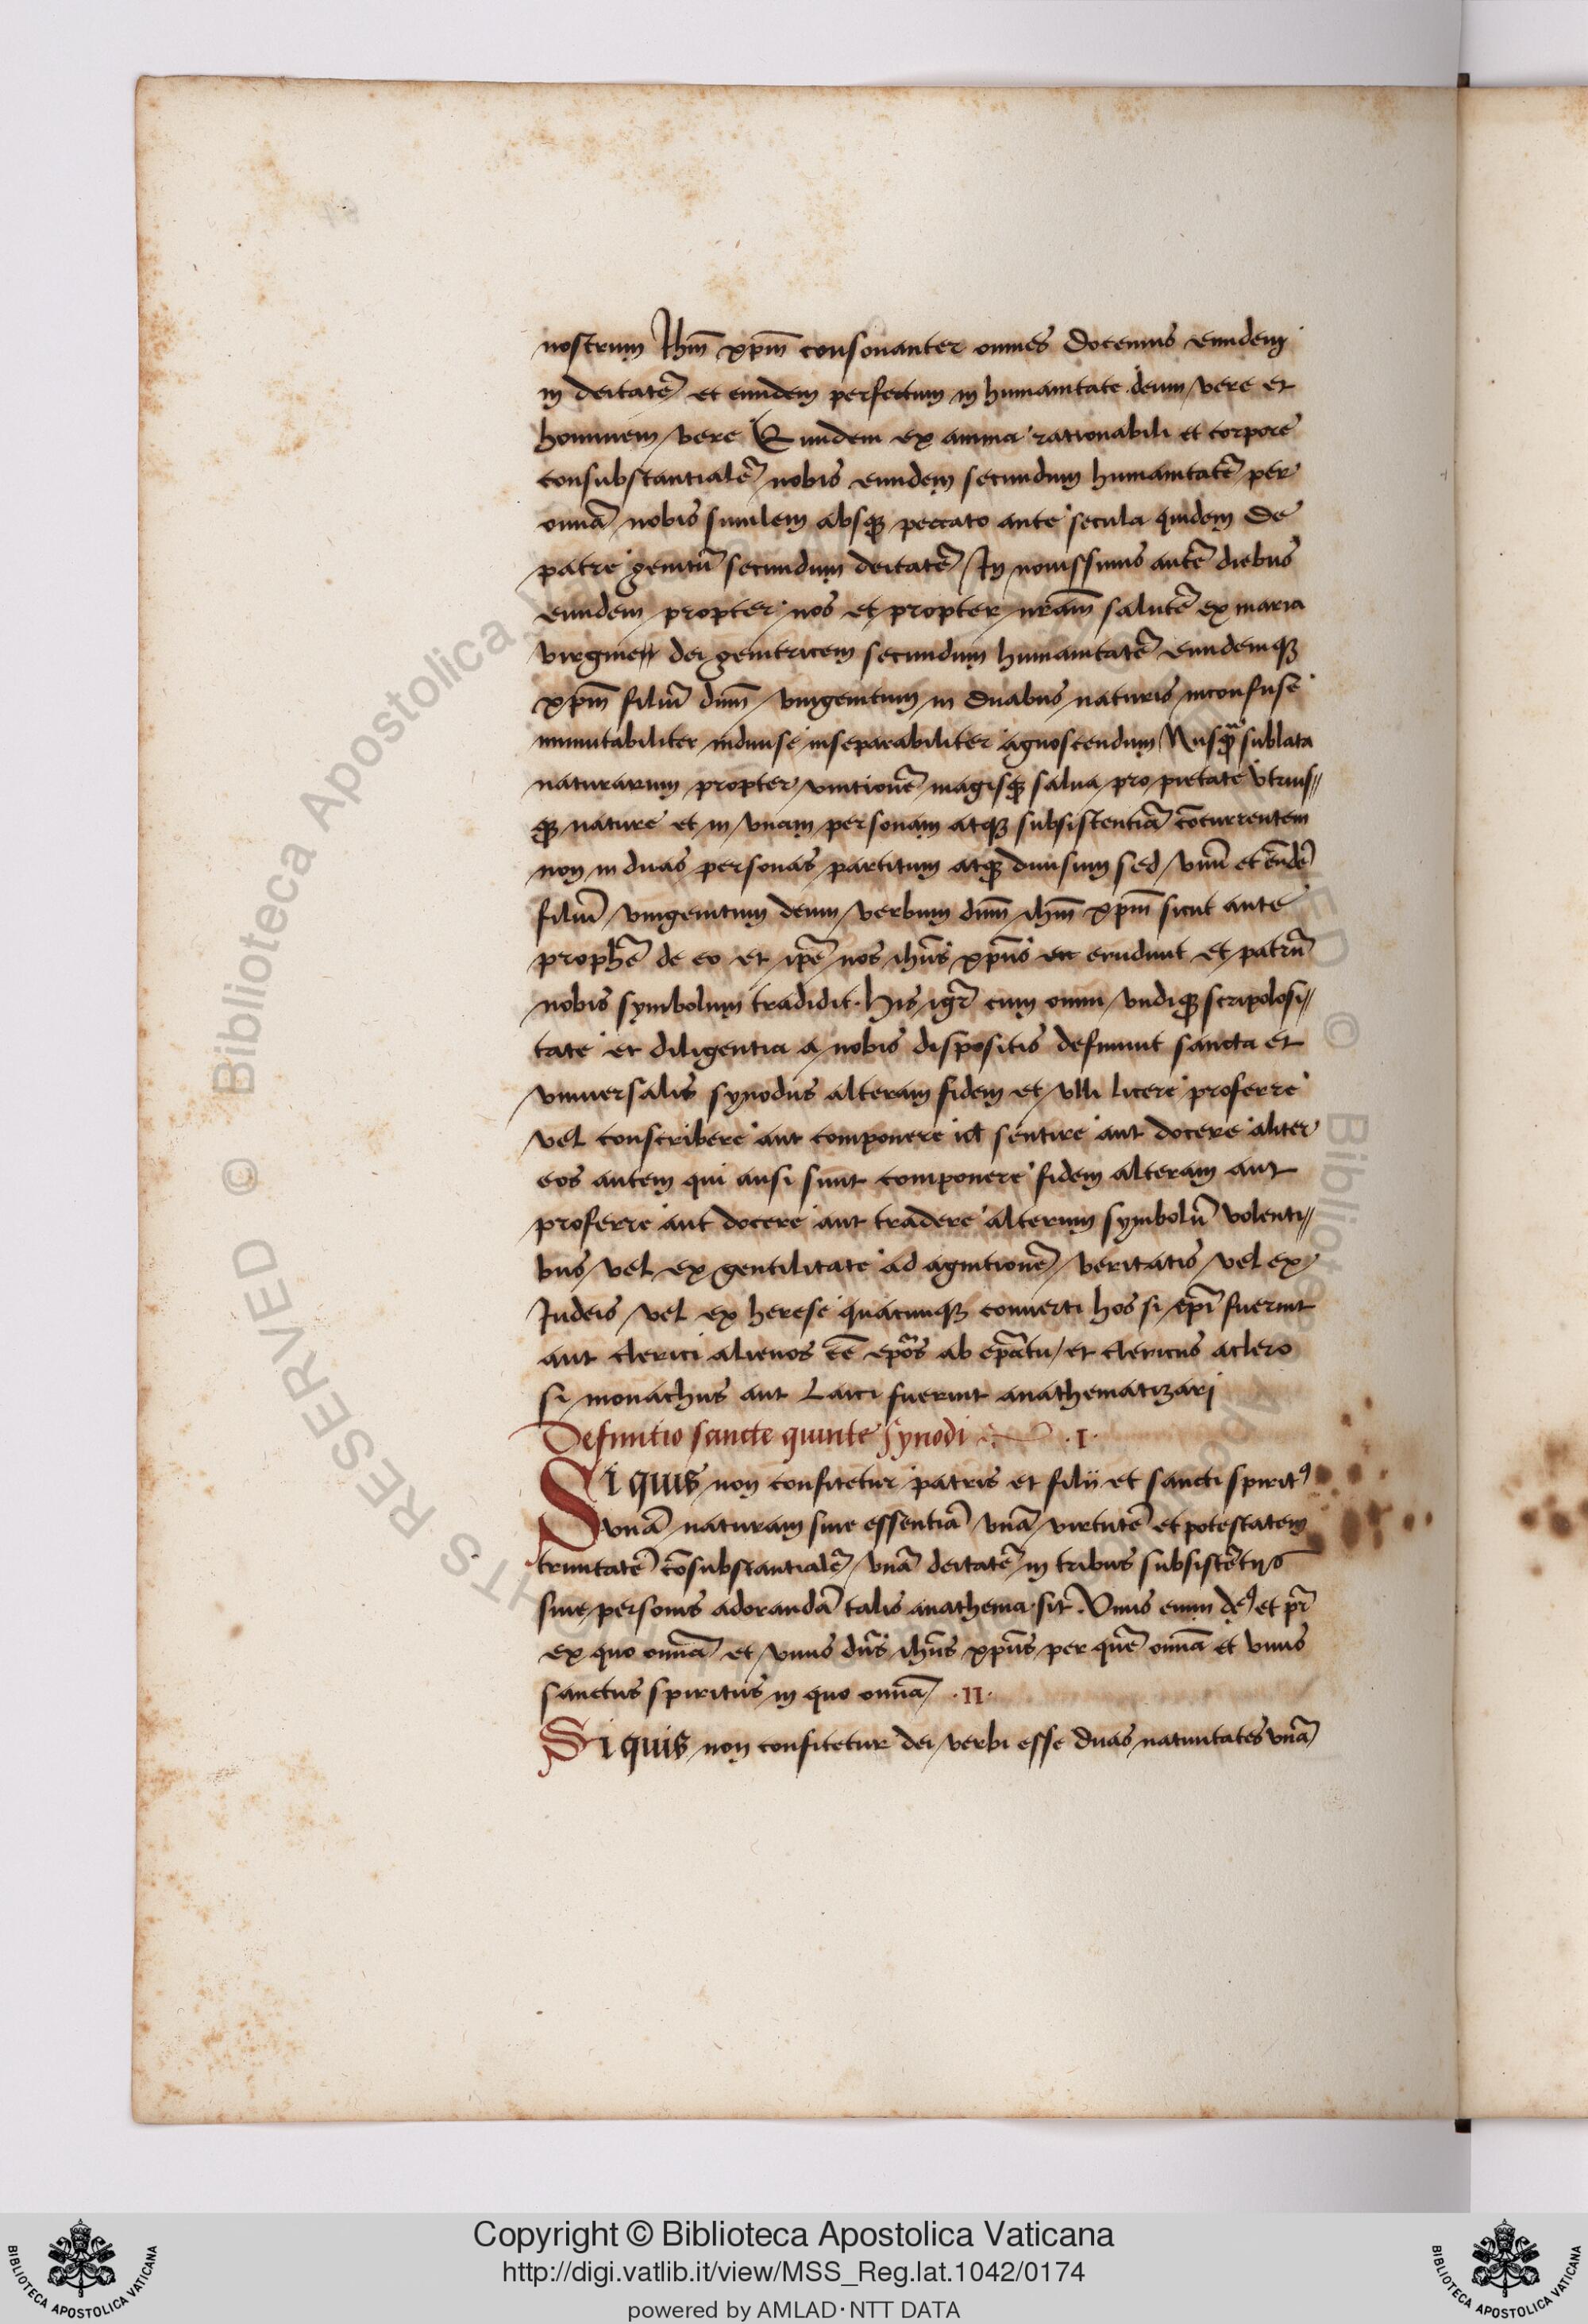 nostrum Ihm̄ xpm̄ consonanter omnes docemus eundem
in deitatē et eundem perfectum in humanitate deum vere et
hominem vere Eundem ex anima rationabili et corpore
consubstantialē nobis eundem secundum humanitatē per
omnā nobis similem absqꝫ peccato ante secula quidem de
patre genitū secundum deitatē In nouissimis autē diebus
eundem propter nos et propter nrām salutē ex maria
virgine dei genitricem secundum humanitatē eundemqꝫ
xpm̄ filiū dnm̄ vnigenitum in duabus naturis inconfuse
inmutabiliter indiuise inseparabiliter agnoscendum Nusqᵃ sublata
naturarum propter vnitionē magisqꝫ salua pro pietate vtrius〃
qꝫ nature et in vnam personam atqꝫ subsistentiā cōcurrentem
non in duas personas partitum atqꝫ diuisum sed vnū et eūdē
filiū vnigenitum deum verbum dnm̄ ihm̄ xpm̄ sicut ante
prophē de eo et ipē nos ihūs xpūs erudiuit et patrū
nobis symbolum tradidit. His igr̄ cum omni vndiqꝫ scripolosi〃
tate et diligentia a nobis dispositis definiuit sancta et
vniuersalis synodus alteram fidem et vlli licere proferre
vel conscribere aut componere sentire aut docere aliter
eos autem qui ausi sunt componere fidem alteram aut
proferre aut docere aut tradere alterum symbolū volenti〃
bus vel ex gentilitate ad agnitionē veritatis vel ex
Iudeis vel ex herese quacunqꝫ conuerti hos si epī fuerint
aut clerici alienos eē epōs ab epātu et clericus aclero
si monachus aut Laici fuerint anathematizari
Definitio sancte quinte synodi .I.
Si quis non confitetur patris et filii et sancti spiritꝰ
vnā naturam siue essentiā vnā virtutē et potestatem
trinitatē cōsubstantialē vnā deitatē in tribus subsistētijs
siue personis adorandā talis anathema sit. Vnus enim deꝰ et pr̄
ex quo omnā et vnus dn̄s ihūs xpūs per quē omnā et vnus
sanctus spiritus in quo omnā .II.
Si quis non confitetur dei verbi esse duas natiuitates vnā
© Biblioteca Apostolica
RESERVED
Copyright © Biblioteca Apostolica Vaticana
http://digi.vatlib.it/view/MSS_Reg.lat.1042/0174
powered by AMLAD·NTT DATA
BIBLIOTECA APOSTOLICA VATICANA
BIBLIOTECA APOSTOLICA VATICANA